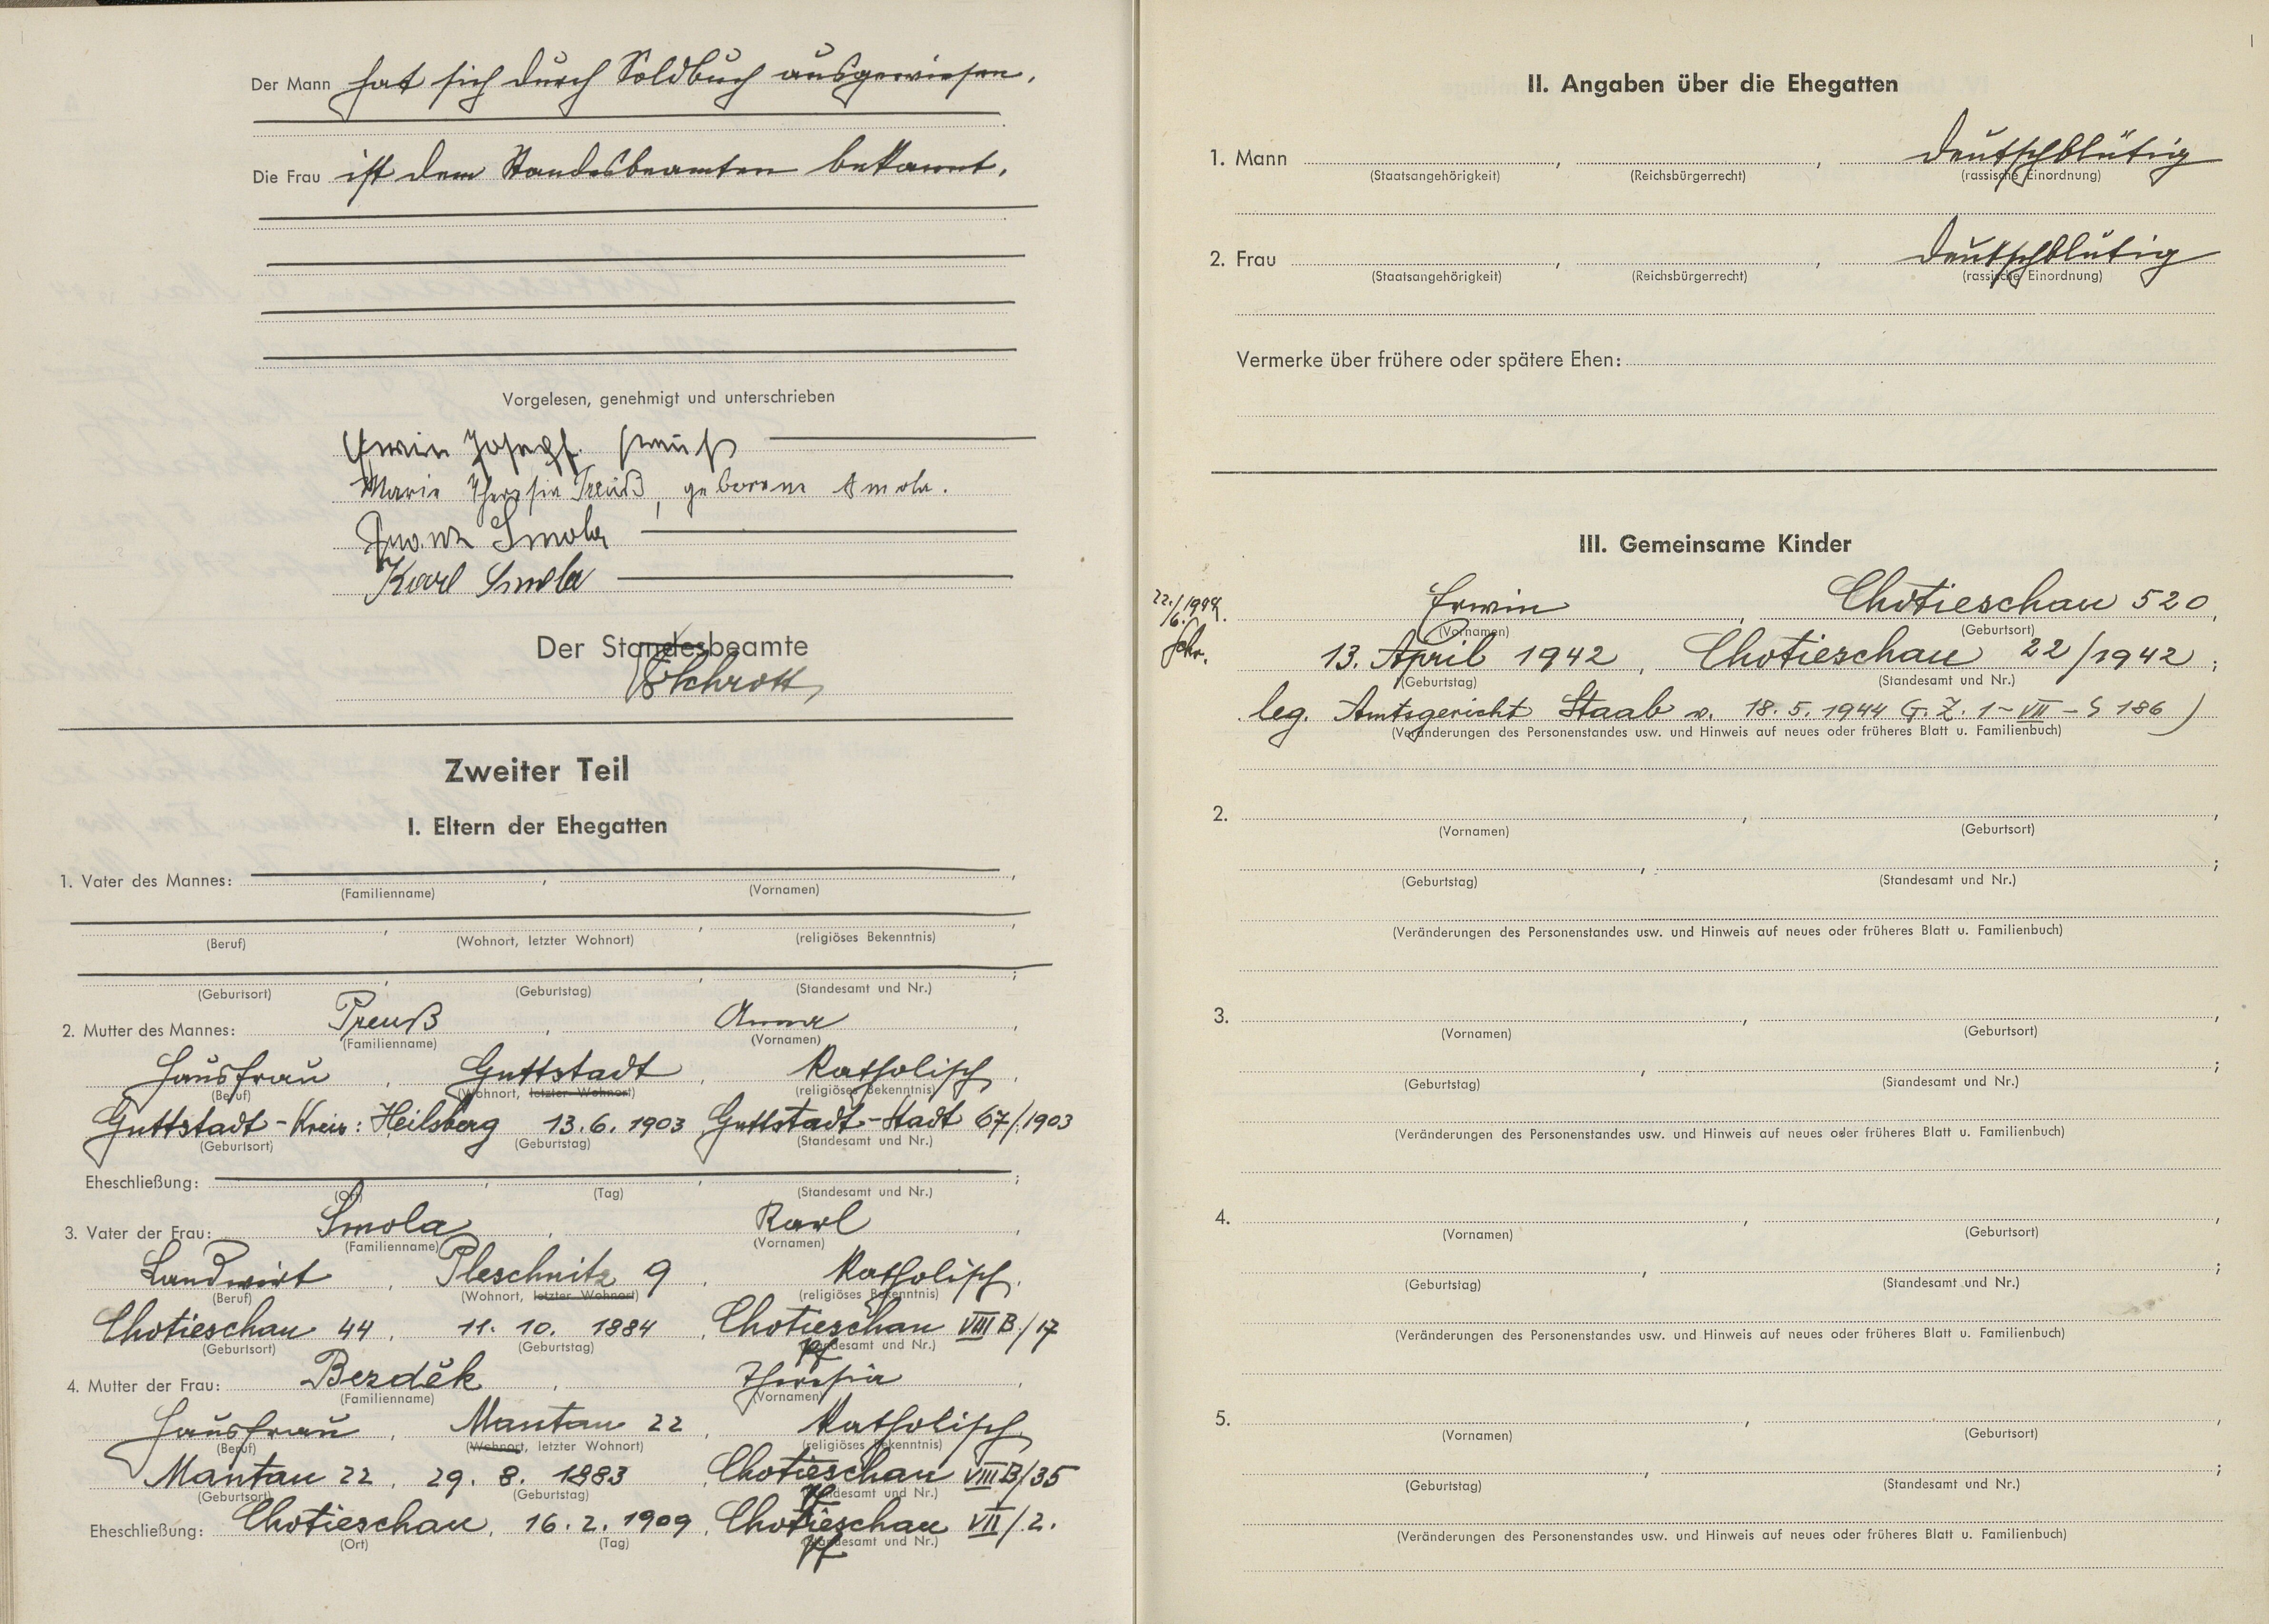 Der Mann hat sich durch Soldbuch ausgewiesen.
Die Frau ist dem Standesbeamten bekannt.
Vorgelesen, genehmigt und unterschrieben
Erwin Joseph Preuß
Marie Theresia Preuß, geborene Smola.
Franz Smola
Karl Smola
Der Standesbeamte
Schrott
Zweiter Teil
I. Eltern der Ehegatten
1. Vater des Mannes:
(Familienname) (Vornamen)
(Beruf) (Wohnort, letzter Wohnort) (religiöses Bekenntnis)
(Geburtsort) (Geburtstag) (Standesamt und Nr.)
2. Mutter des Mannes: Preuß, Anna,
(Familienname) (Vornamen)
Hausfrau, Guttstadt, Katholisch,
(Beruf) (Wohnort, letzter Wohnort) (religiöses Bekenntnis)
Guttstadt-Kreis: Heilsberg 13.6.1903 Guttstadt-Stadt 67/1903
(Geburtsort) (Geburtstag) (Standesamt und Nr.)
Eheschließung:
(Ort) (Tag) (Standesamt und Nr.)
3. Vater der Frau: Smola, Karl,
(Familienname) (Vornamen)
Landwirt, Pleschnitz 9, Katholisch,
(Beruf) (Wohnort, letzter Wohnort) (religiöses Bekenntnis)
Chotieschau 44, 11. 10. 1884, Chotieschau VIII B./17
(Geburtsort) (Geburtstag) (Standesamt und Nr.)
4. Mutter der Frau: Bezděk, Theresia,
(Familienname) (Vornamen)
Hausfrau, Mantau 22, Katholisch,
(Beruf) (Wohnort, letzter Wohnort) (religiöses Bekenntnis)
Mantau 22, 29. 8. 1883, Chotieschau VIII B/35
(Geburtsort) (Geburtstag) (Standesamt und Nr.)
Eheschließung: Chotieschau, 16. 2. 1909, Chotieschau VII/2.
(Ort) (Tag) (Standesamt und Nr.)
II. Angaben über die Ehegatten
1. Mann , , deutschblütig
(Staatsangehörigkeit) (Reichsbürgerrecht) (rassische Einordnung)
2. Frau , , deutschblütig
(Staatsangehörigkeit) (Reichsbürgerrecht) (rassische Einordnung)
Vermerke über frühere oder spätere Ehen:
III. Gemeinsame Kinder
22./6.1944. Erwin, Chotieschau 520,
(Vornamen) (Geburtsort)
Schr. 13. April 1942, Chotieschau 22/1942;
(Geburtstag) (Standesamt und Nr.)
leg. Amtsgericht Staab v. 18.5.1944 G.Z. 1-VII-S 186)
(Veränderungen des Personenstandes usw. und Hinweis auf neues oder früheres Blatt u. Familienbuch)
2.
(Vornamen) (Geburtsort)
(Geburtstag) (Standesamt und Nr.)
(Veränderungen des Personenstandes usw. und Hinweis auf neues oder früheres Blatt u. Familienbuch)
3.
(Vornamen) (Geburtsort)
(Geburtstag) (Standesamt und Nr.)
(Veränderungen des Personenstandes usw. und Hinweis auf neues oder früheres Blatt u. Familienbuch)
4.
(Vornamen) (Geburtsort)
(Geburtstag) (Standesamt und Nr.)
(Veränderungen des Personenstandes usw. und Hinweis auf neues oder früheres Blatt u. Familienbuch)
5.
(Vornamen) (Geburtsort)
(Geburtstag) (Standesamt und Nr.)
(Veränderungen des Personenstandes usw. und Hinweis auf neues oder früheres Blatt u. Familienbuch)